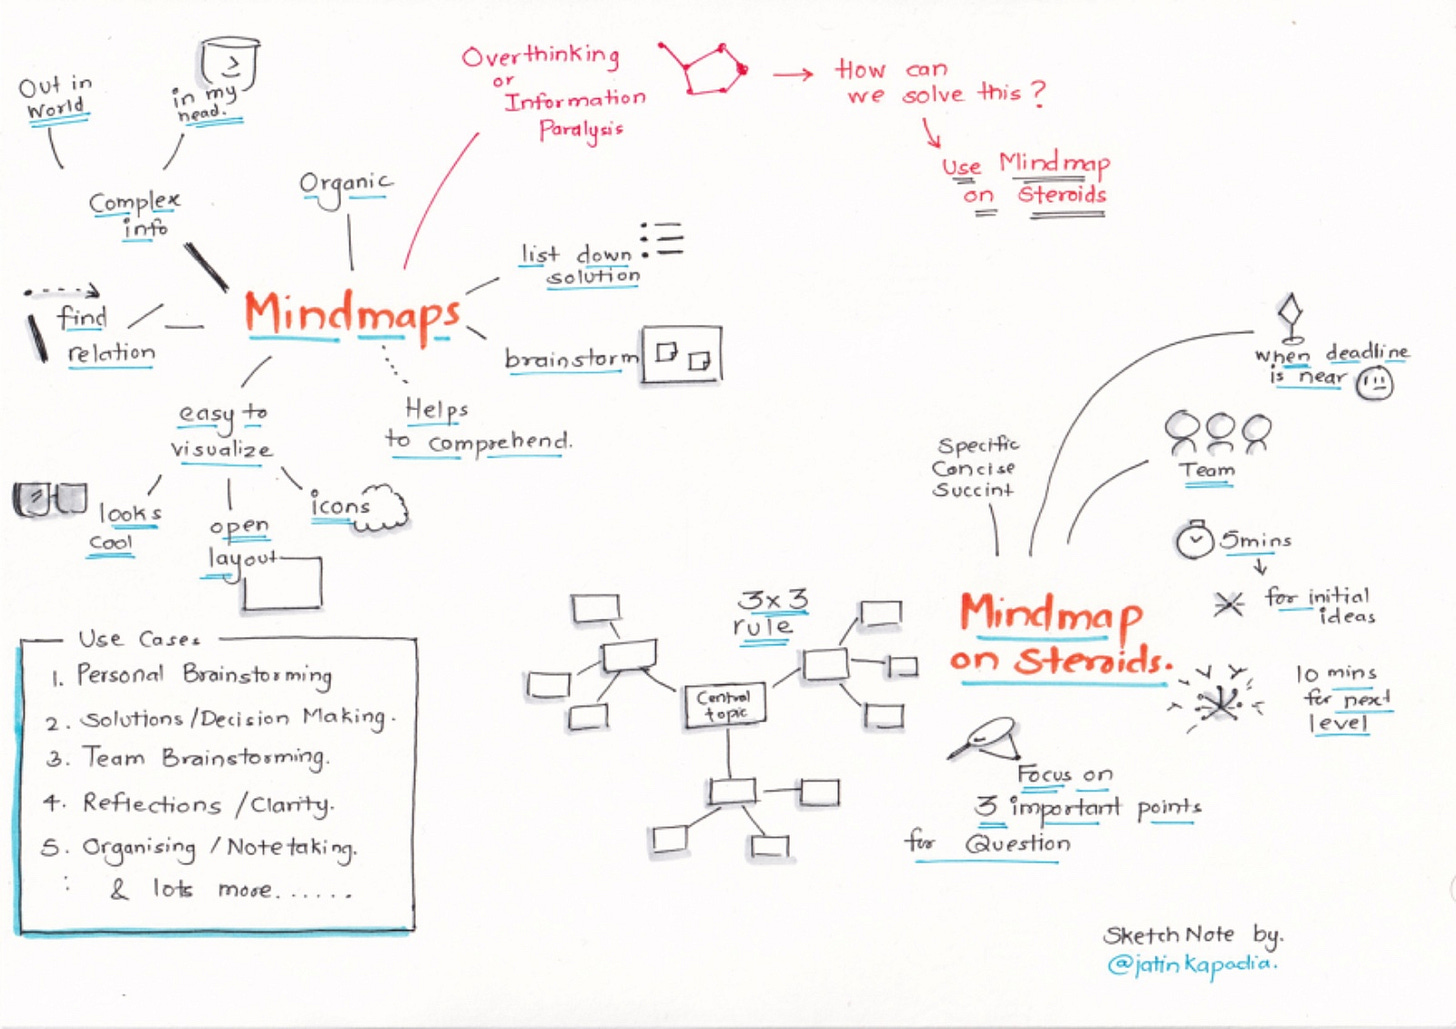 Out in
World
in my
head.
Complex
info
Organic
Overthinking
or
Information
Paralysis
How can
we solve this?
Use Mindmap
on Steroids
find
relation
Mindmaps
list down
solution
brainstorm
easy to
visualize
Helps
to comprehend.
looks
cool
open
layout
icons
Use Cases
1. Personal Brainstorming
2. Solutions/Decision Making.
3. Team Brainstorming.
4. Reflections/Clarity.
5. Organising/Notetaking.
: & lots more......
3x3
rule
Central
topic
Specific
Concise
Succint
when deadline
is near
Team
5mins
for initial
ideas
Mindmap
on Steroids.
10 mins
for next
level
Focus on
3 important points
for Question
SketchNote by.
@jatinkapadia.